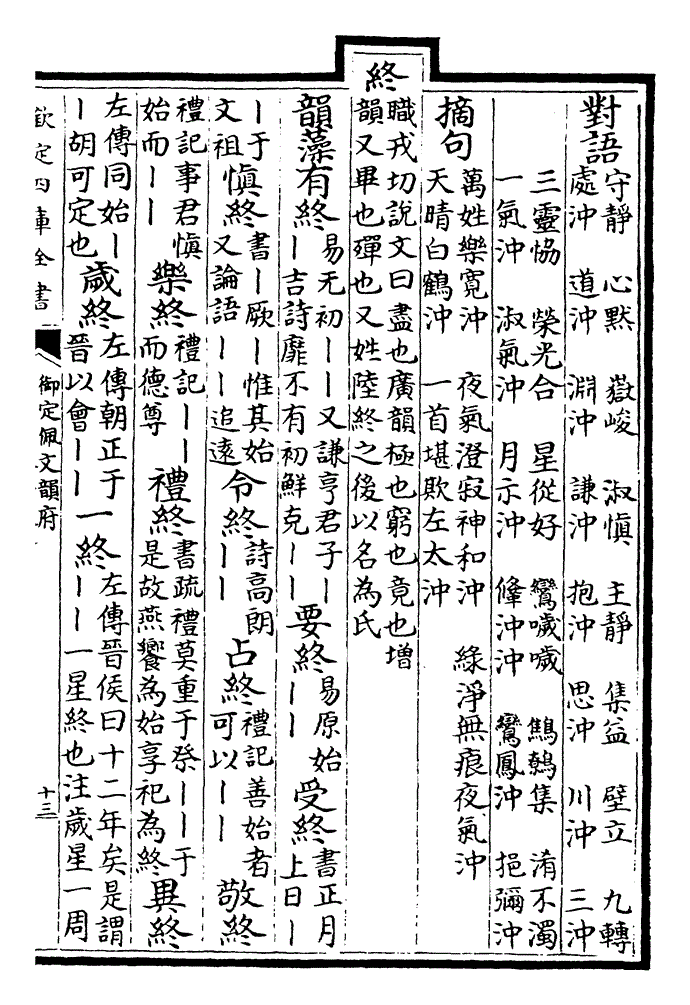 對語
守靜 心默 嶽峻 淑慎 主靜 集益 壁立 九轉
處沖 道沖 淵沖 謙沖 抱沖 思沖 川沖 三沖
三靈恊 榮光合 星從好 鸞噦噦 集 淆不濁
一氣沖 淑氣沖 月示沖 沖沖 鸞鳳沖 挹彌沖
摘句
萬姓樂寛沖 夜氣澄寂神和沖 綠淨無痕夜氣沖
天晴白鶴沖 一首堪欺左太沖
終
職戎切說文曰盡也廣韻極也窮也竟也增
韻又畢也殫也又姓陸終之後以名為氏
韻藻有終易无初丨丨又謙亨君子丨丨吉詩靡不有初鮮克丨丨要終易原始丨丨受終書正月上日丨
丨于文祖慎終書丨厥丨惟其始又論語丨丨追逺令終詩高朗丨丨占終禮記善始者可以丨丨敬終
禮記事君慎始而丨丨樂終禮記丨丨而德尊禮終書疏禮莫重于祭丨丨于是故燕饗為始享祀為終異終
左傳同始丨丨胡可定也歲終左傳朝正于晉以會丨丨一終左傳晉侯曰十二年矣是謂丨丨一星終也注歲星一周
欽定四庫全書
御定佩文韻府
十三